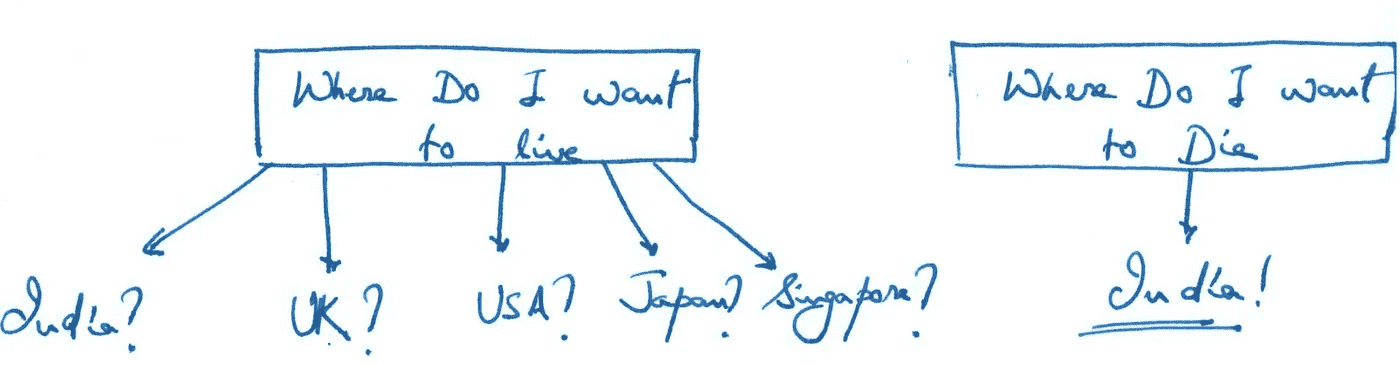 Where Do I want
to live
India?
UK?
USA?
Japan?
Singapore?
Where Do I want
to Die
India!